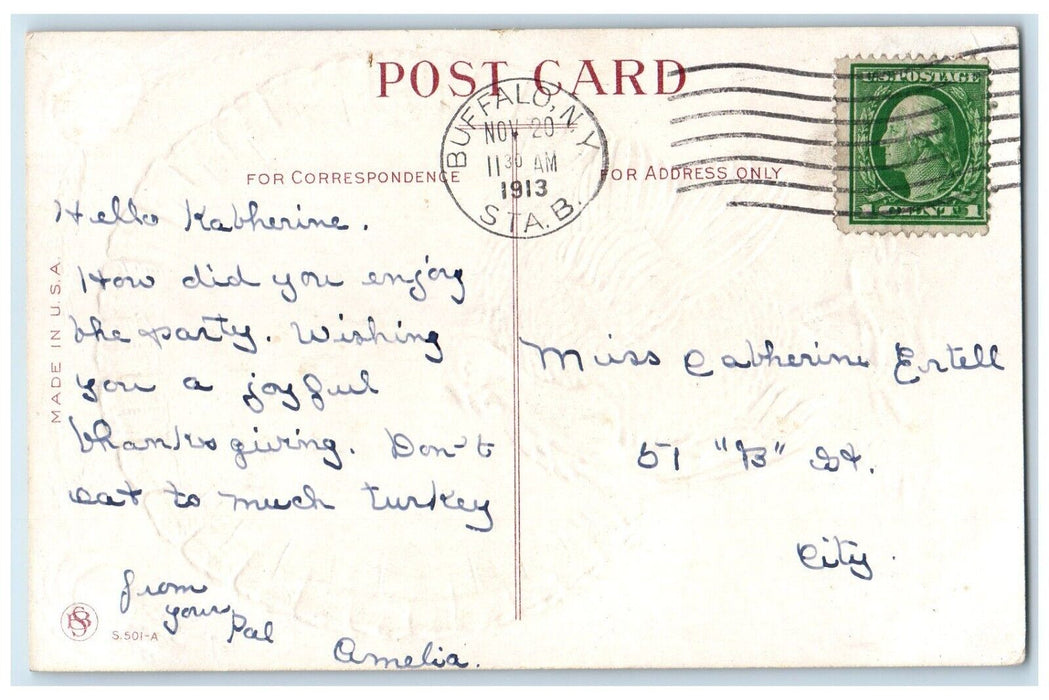 POST CARD
U.S. POSTAGE
BUFFALO, N.Y.
NOV 20
11 30 AM
1913
STA. B.
1 CENT 1
FOR CORRESPONDENCE
FOR ADDRESS ONLY
Hello Katherine.
How did you enjoy
the party. Wishing
you a joyful
thanksgiving. Don't
eat to much turkey
from
your
Pal
Amelia.
Miss Catherine Ertell
51 "B" St.
City.
MADE IN U.S.A.
S.501-A